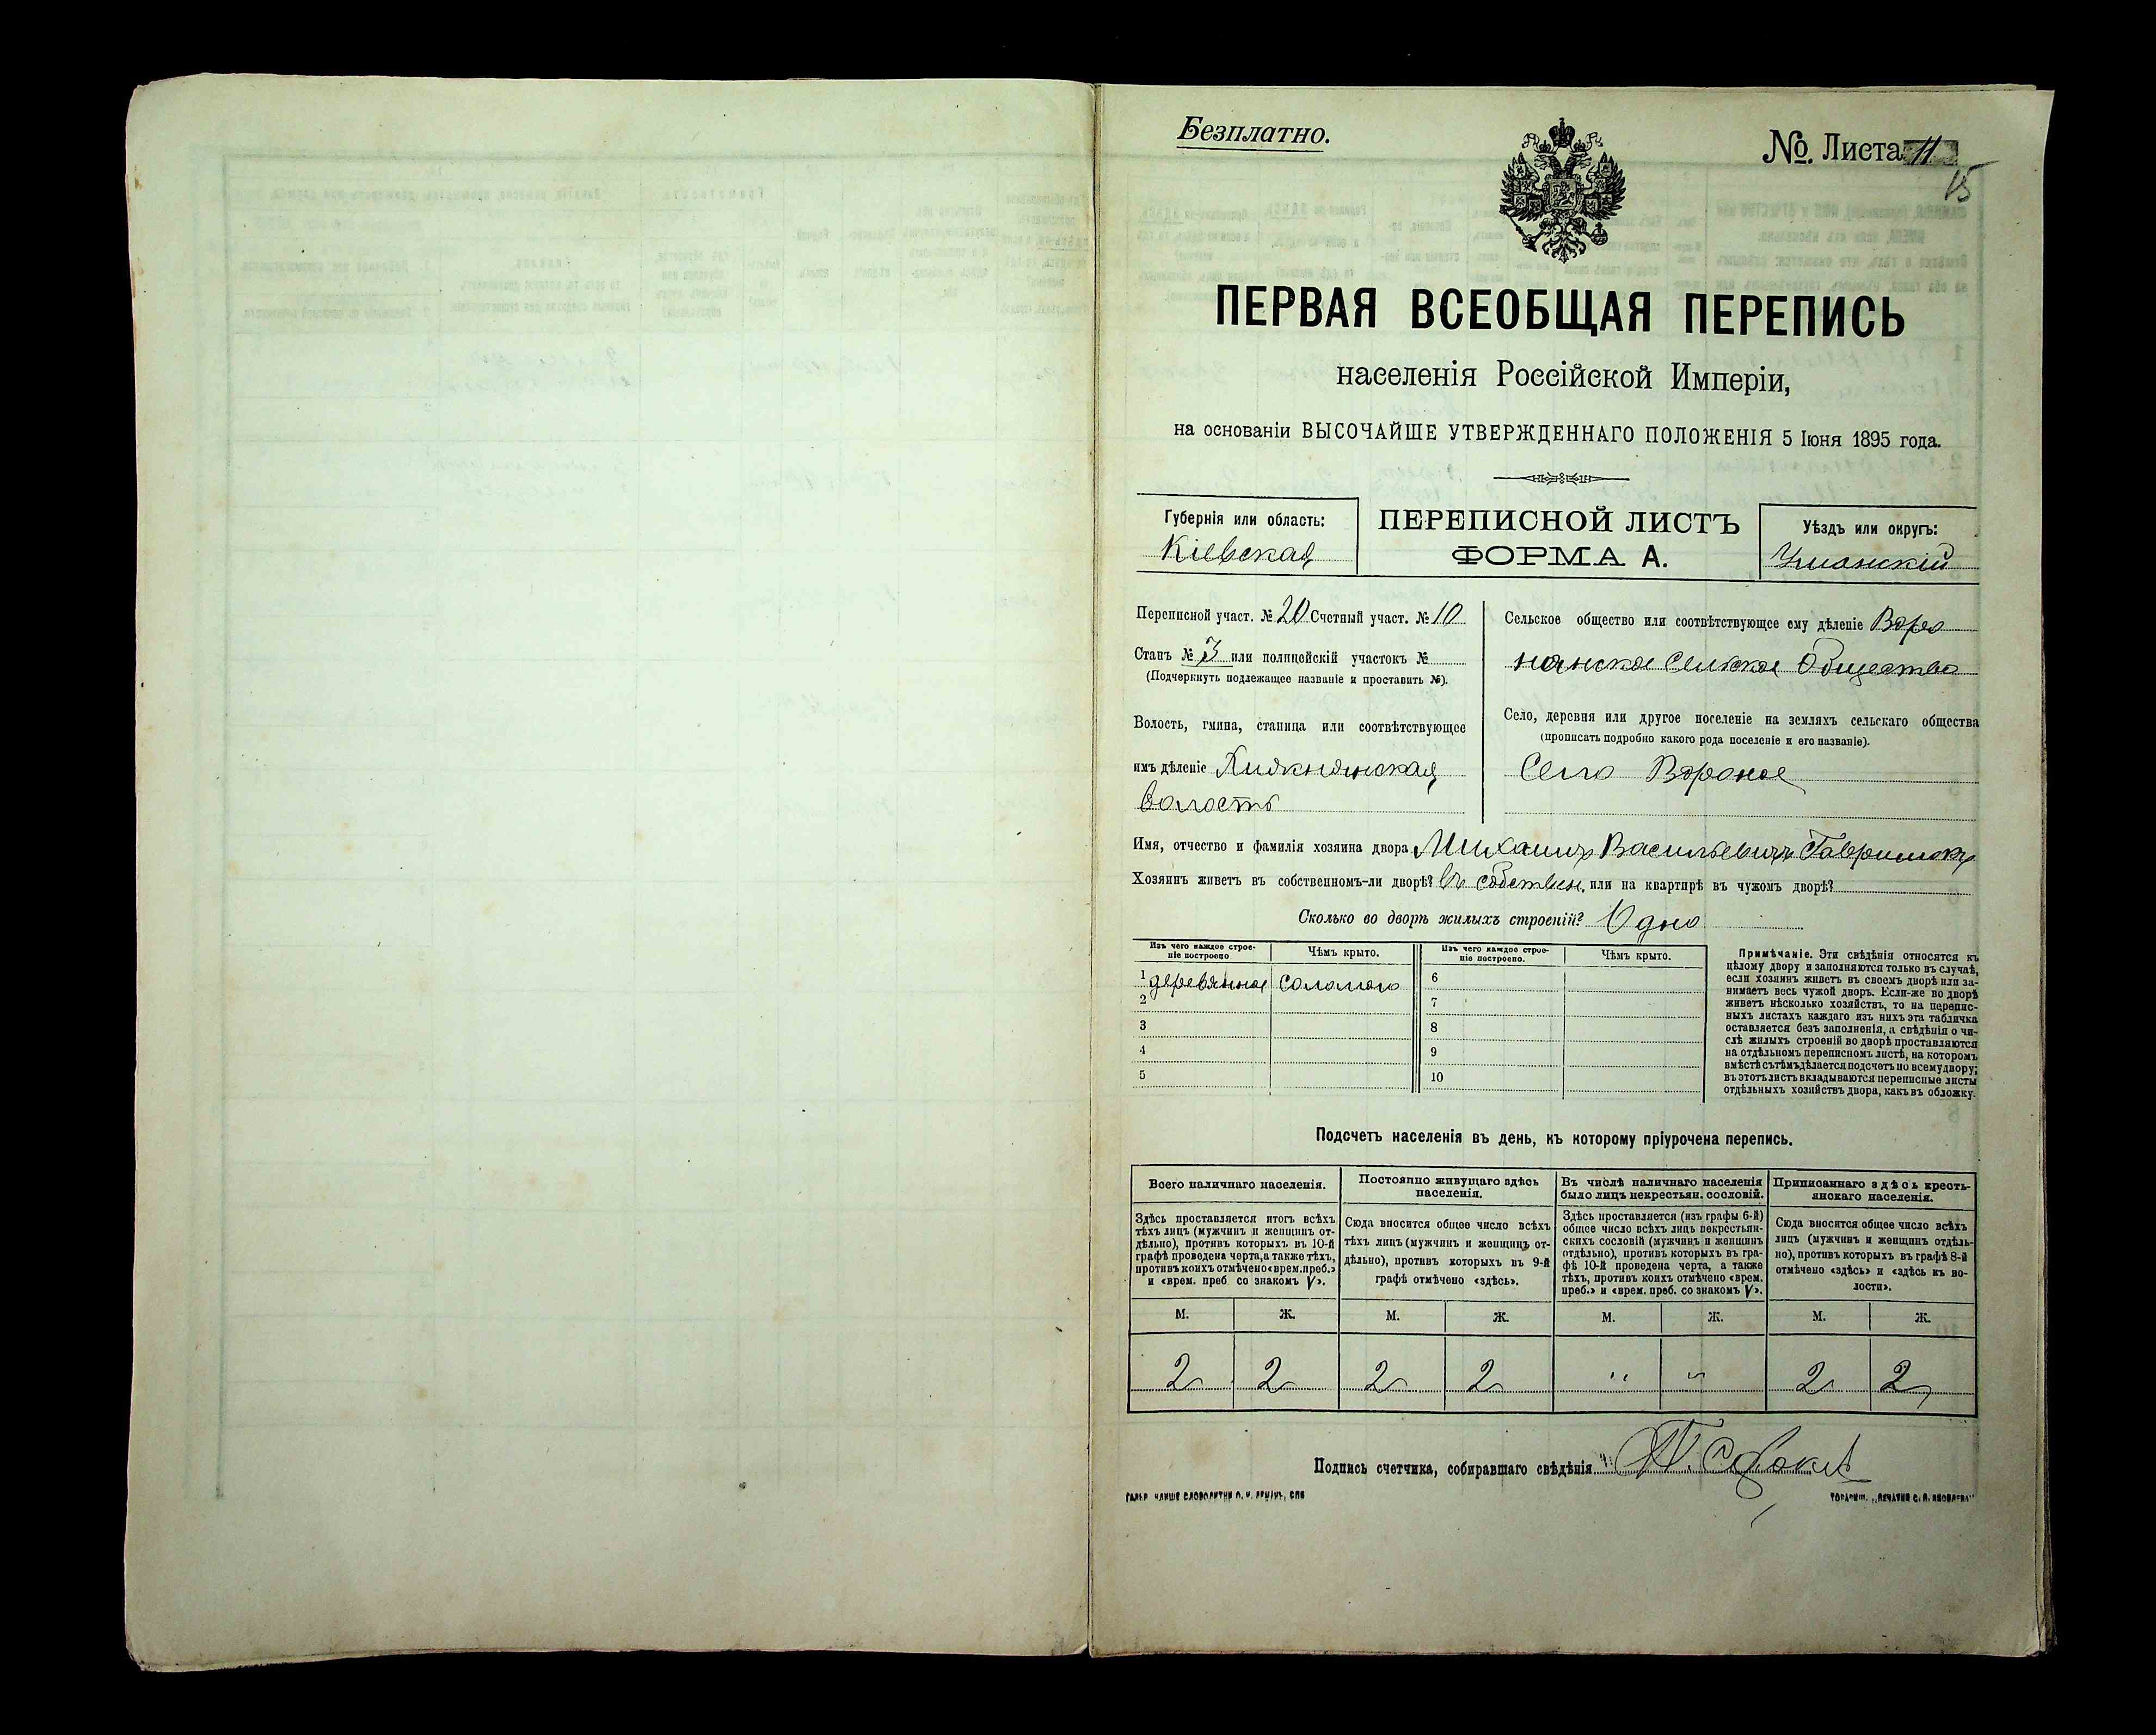 Безплатно.
№. Листа 11
15
ПЕРВАЯ ВСЕОБЩАЯ ПЕРЕПИСЬ
населенія Россійской Имперіи,
на основаніи ВЫСОЧАЙШЕ УТВЕРЖДЕННАГО ПОЛОЖЕНІЯ 5 Іюня 1895 года.
Губернія или область:
Кіевская
ПЕРЕПИСНОЙ ЛИСТЪ
ФОРМА А.
Уѣздъ или округъ:
Уманскій
Переписной участ. № 20 Счетный участ. № 10
Станъ № 3 или полицейскій участокъ №
(Подчеркнуть подлежащее названіе и проставить №).
Волость, гмина, станица или соотвѣтствующее
имъ дѣленіе
волость
Сельское общество или соотвѣтствующее ему дѣленіе Воро
нянское сельское общество
Село, деревня или другое поселеніе на земляхъ сельскаго общества
(прописать подробно какого рода поселеніе и его названіе).
Село Вороное
Имя, отчество и фамилія хозяина двора Михаилъ Васильевичъ Гаврилюкъ
Хозяинъ живетъ въ собственномъ-ли дворѣ? въ собствен. или на квартирѣ въ чужомъ дворѣ?
Сколько во дворѣ жилыхъ строеній? Одно
Изъ чего каждое строе-
ніе построено.
Чѣмъ крыто.
Изъ чего каждое строе-
ніе построено.
Чѣмъ крыто.
1 деревянное соломою
2
3
4
5
6
7
8
9
10
Примѣчаніе. Эти свѣдѣнія относятся къ
цѣлому двору и заполняются только въ случаѣ,
если хозяинъ живетъ въ своемъ дворѣ или за-
нимаетъ весь чужой дворъ. Если-же во дворѣ
живетъ нѣсколько хозяйствъ, то на перепис-
ныхъ листахъ каждаго изъ нихъ эта табличка
оставляется безъ заполненія, а свѣдѣнія о чи-
слѣ жилыхъ строеній во дворѣ проставляются
на отдѣльномъ переписномъ листѣ, на которомъ
вмѣстѣ съ тѣмъ дѣлается подсчетъ по всему двору;
въ этотъ листъ вкладываются переписные листы
отдѣльныхъ хозяйствъ двора, какъ въ обложку.
Подсчетъ населенія въ день, къ которому пріурочена перепись.
Всего наличнаго населенія.
Здѣсь проставляется итогъ всѣхъ
тѣхъ лицъ (мужчинъ и женщинъ от-
дѣльно), противъ которыхъ въ 10-й
графѣ проведена черта, а также тѣхъ,
противъ коихъ отмѣчено «врем. преб.»
и «врем. преб. со знакомъ V».
Постоянно живущаго здѣсь
населенія.
Сюда вносится общее число всѣхъ
тѣхъ лицъ (мужчинъ и женщинъ от-
дѣльно), противъ которыхъ въ 9-й
графѣ отмѣчено «здѣсь».
Въ числѣ наличнаго населенія
было лицъ некрестьян. сословій.
Здѣсь проставляется (изъ графы 6-й)
общее число всѣхъ лицъ некрестьян-
скихъ сословій (мужчинъ и женщинъ
отдѣльно), противъ которыхъ въ гра-
фѣ 10-й проведена черта, а также
тѣхъ, противъ коихъ отмѣчено «врем.
преб.» и «врем. преб. со знакомъ V».
Приписаннаго здѣсь кресть-
янскаго населенія.
Сюда вносится общее число всѣхъ
лицъ (мужчинъ и женщинъ отдѣль-
но), противъ которыхъ въ графѣ 8-й
отмѣчено «здѣсь» и «здѣсь къ во-
лости».
М. Ж. М. Ж. М. Ж. М. Ж.
2 2 2 2 " " 2 2
Подпись счетчика, собиравшаго свѣдѣнія